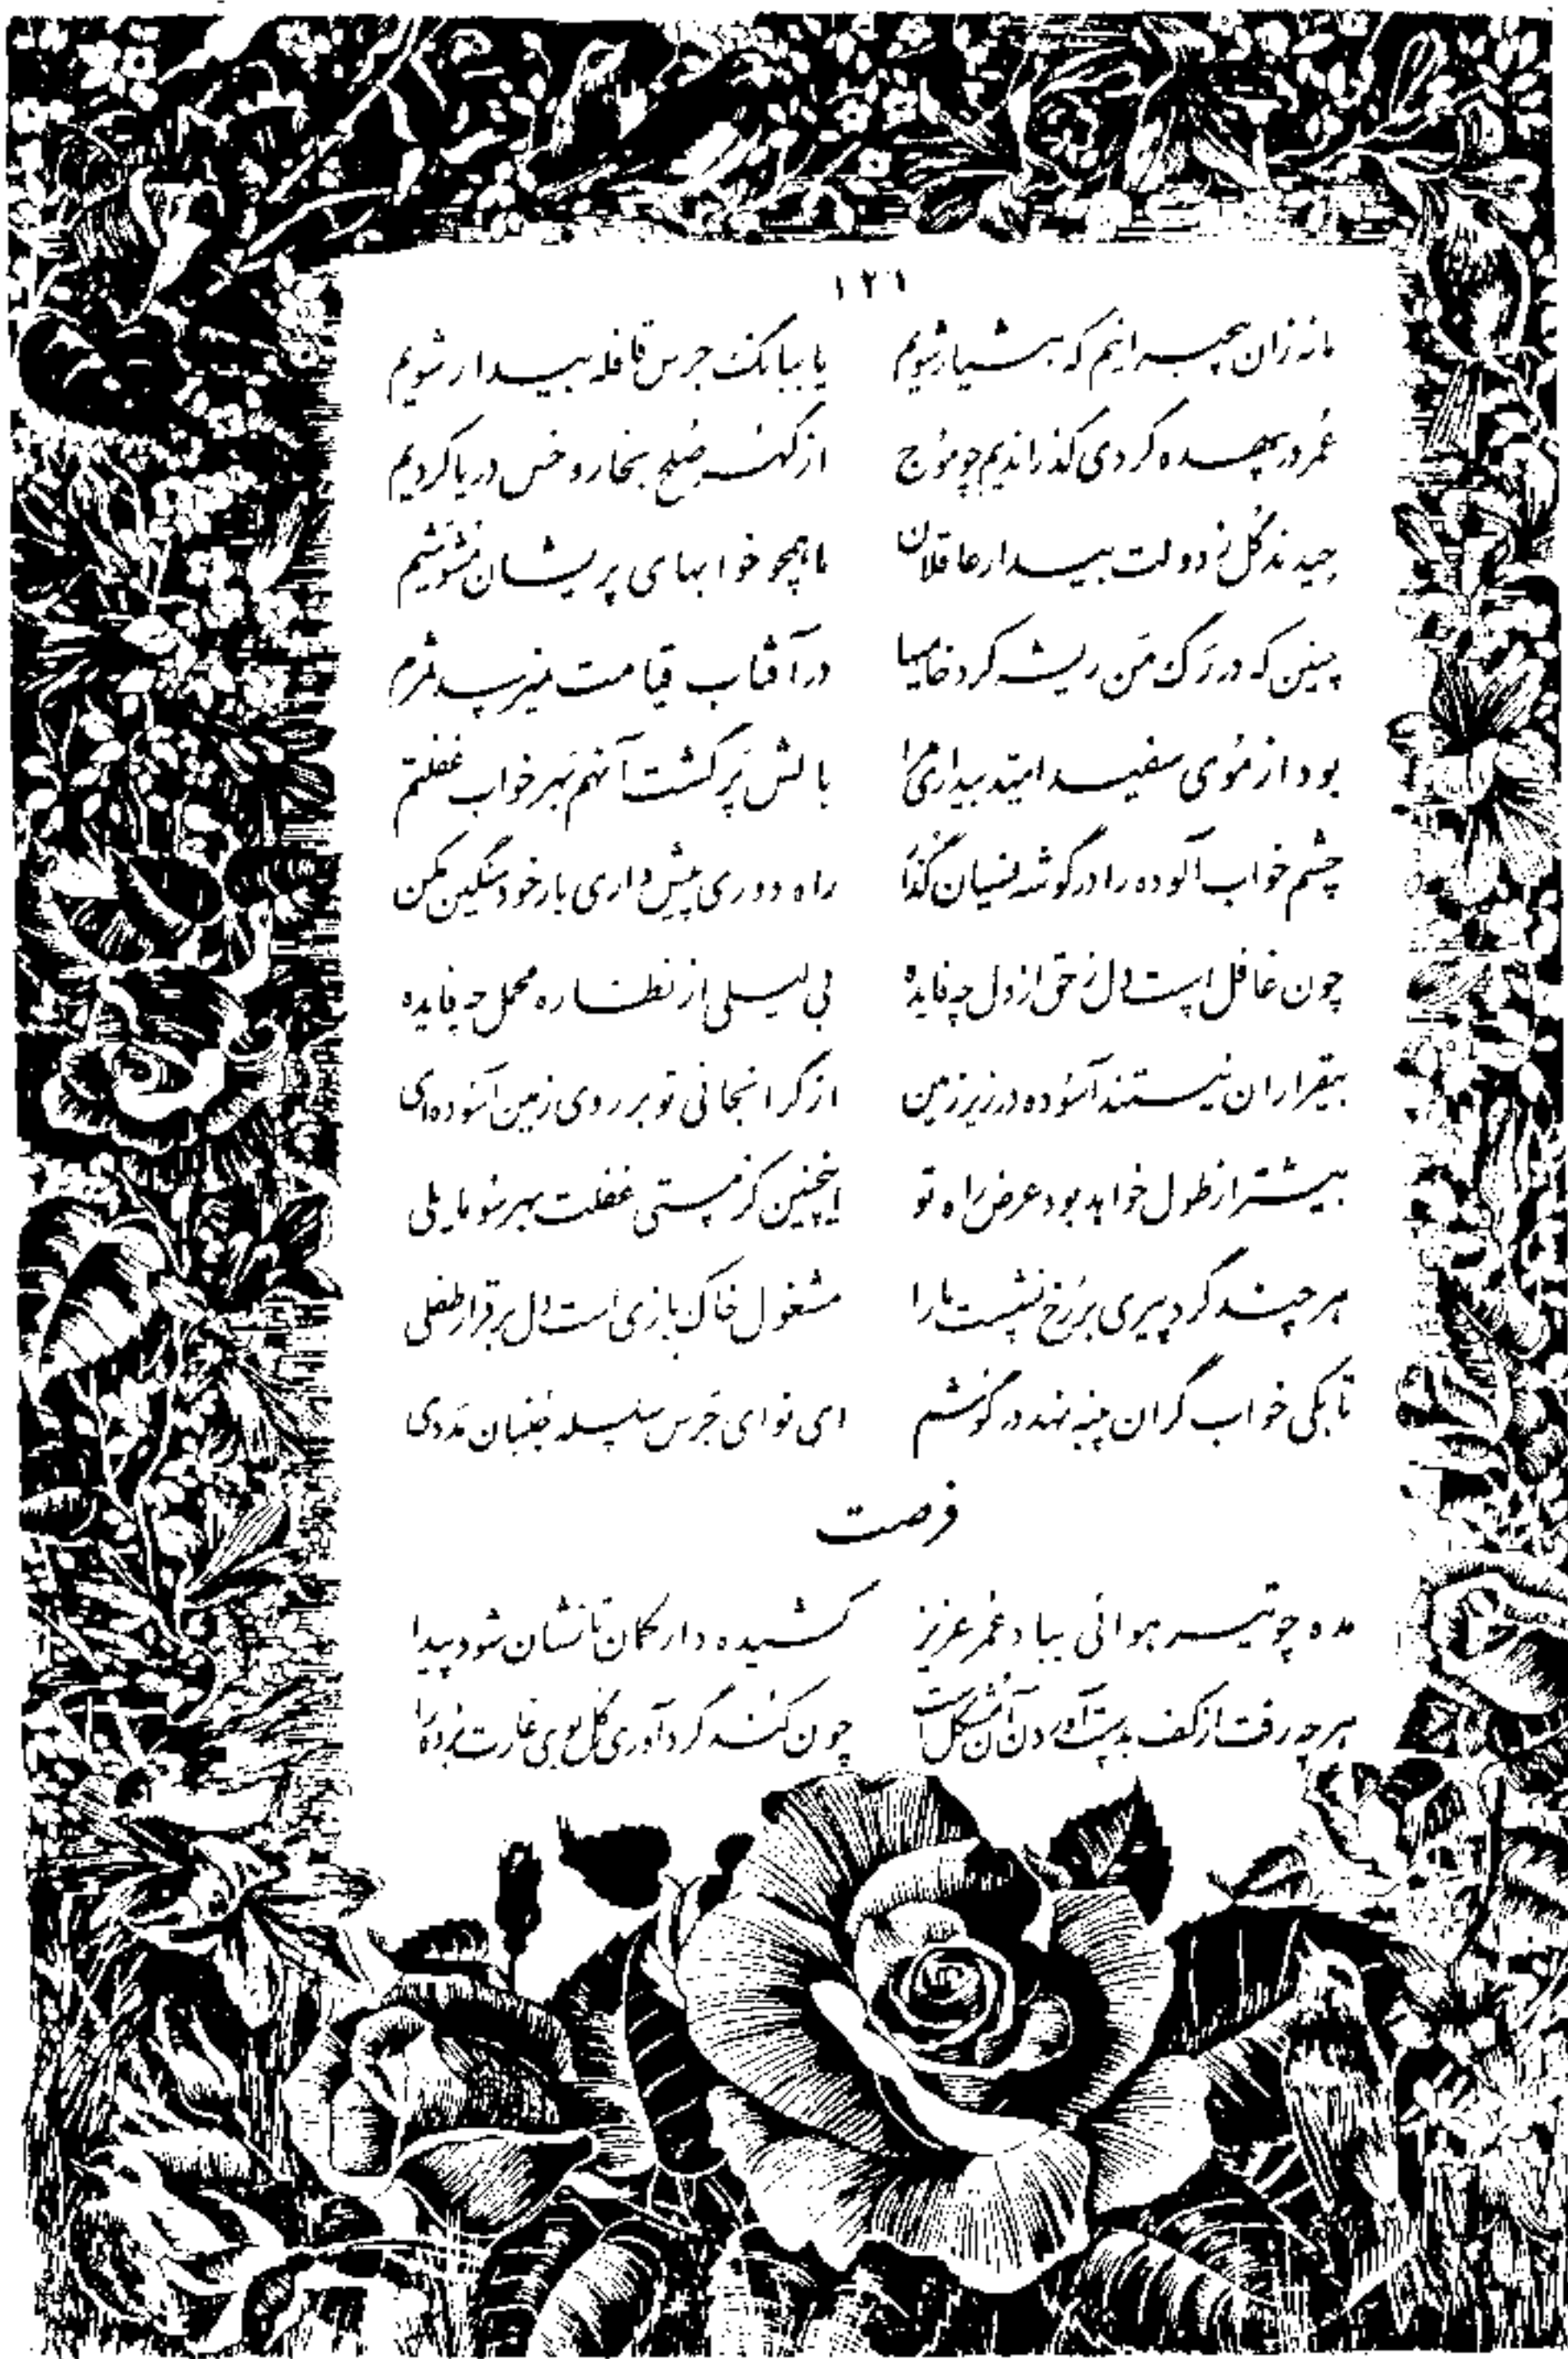 ۱۲۱
ما نه زان بیخبرانیم که هشیار شویم یا ببانگ جرس قافله بیدار شویم
عُمر در بیهده گردی گذراندیم چو مَوج از گهر صُلح بخار و خس دریا کردیم
چیدند گُل ز دولت بیدار عاقلان ما همچو خوابهای پریشان مُشَوَّشیم
چنین که در رَگ مَن ریشه کرد خامیها در آفتاب قیامت نمیرسد ثمرم
بود از مُوی سفید امّید بیداری مرا بالش پَر گشت آنهم بَهر خواب غفلتم
چشم خواب آلوده را در گوشه نسیان گذار راه دوری پیش داری بار خود سنگین مکن
چون غافل است دل ز حق از دل چه فایده بی لیلی از نظاره محمل چه فایده
بیقراران نیستند آسُوده در زیر زمین از گرانجانی تو بر روی زمین آسُوده‌ای
بیشتر از طول خواهد بود عرض راه تو اینچنین کز مستی غفلت بهر سو مایلی
هر چند گرد پیری بر رُخ نشست ما را مشغول خاک بازی است دل برقرار طفلی
تا بکی خواب گران پنبه نهد در گوشم ای نوای جَرس سلسله جُنبان مَدَدی
فرصت
مده چو تیر هوائی بباد عُمر عزیز کشیده دار کمان تا نشان شود پیدا
هر چه رفت از کف بدست آوردن آن مُشکل است چون کند گردآوری گُل بوی غارت بُرده را